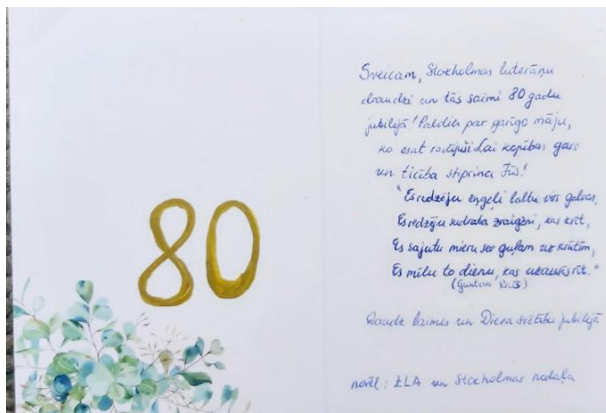 80
Sveicam, Stokholmas luterāņu
draudzi un tās saimi 80 gadu
jubilejā! Paldies par garīgo māju,
ko esat radījuši. Lai kopības gars
un ticība stiprina Jūs!
"Es redzēju eņģeli baltu virs galvas,
Es redzēju sudraba zvaigzni, kas krīt,
Es sajutu mieru sev guļam uz krūtīm,
Es mīlu to dienu, kas uzausīs rīt."
(Gunārs)
Daudz laimes un Dieva svētību jubilejā
novēl: ZLA un Stokholmas nodaļa